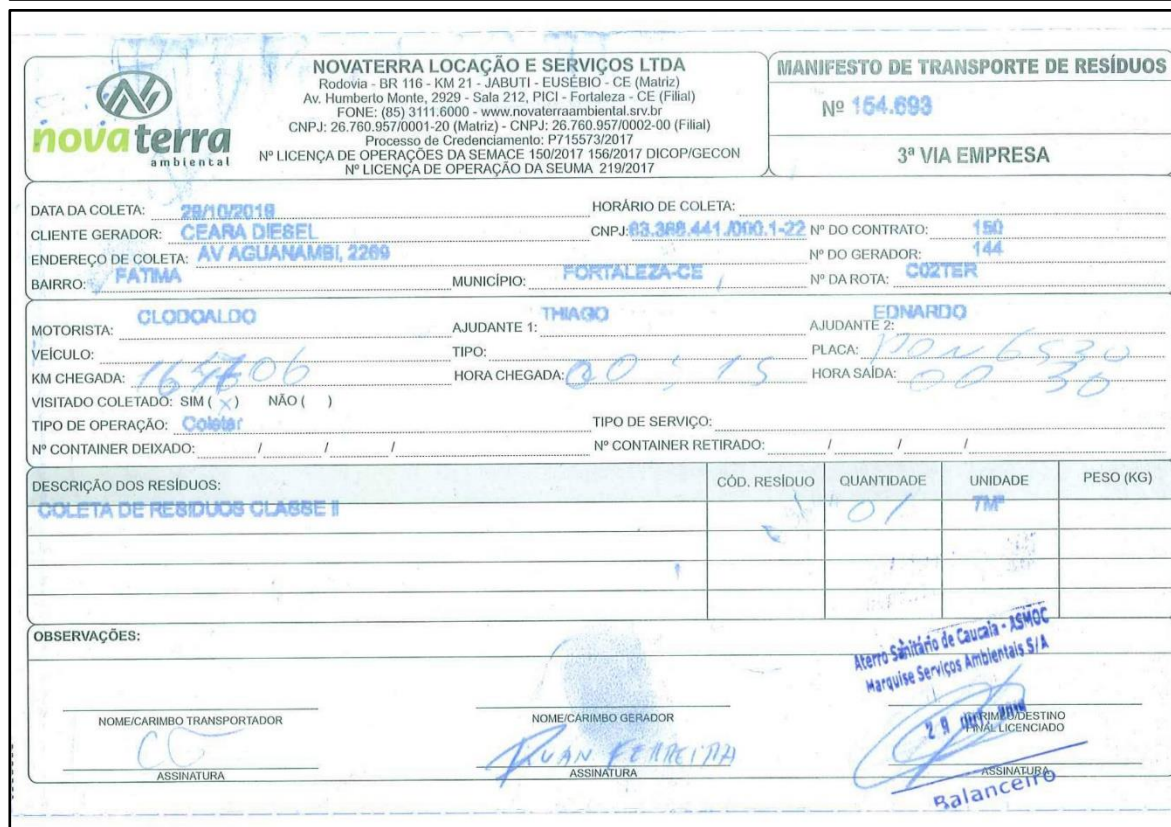 novaterra
ambiental
NOVATERRA LOCAÇÃO E SERVIÇOS LTDA
Rodovia - BR 116 - KM 21 - JABUTI - EUSÉBIO - CE (Matriz)
Av. Humberto Monte, 2929 - Sala 212, PICI - Fortaleza - CE (Filial)
FONE: (85) 3111.6000 - www.novaterraambiental.srv.br
CNPJ: 26.760.957/0001-20 (Matriz) - CNPJ: 26.760.957/0002-00 (Filial)
Processo de Credenciamento: P715573/2017
Nº LICENÇA DE OPERAÇÕES DA SEMACE 150/2017 156/2017 DICOP/GECON
Nº LICENÇA DE OPERAÇÃO DA SEUMA 219/2017
MANIFESTO DE TRANSPORTE DE RESÍDUOS
Nº 154.693
3ª VIA EMPRESA
DATA DA COLETA: 29/10/2019 HORÁRIO DE COLETA:
CLIENTE GERADOR: CEARA DIESEL CNPJ: 63.388.441./000.1-22 Nº DO CONTRATO: 150
ENDEREÇO DE COLETA: AV AGUANAMBI, 2269 Nº DO GERADOR: 144
BAIRRO: FATIMA MUNICÍPIO: FORTALEZA-CE Nº DA ROTA: C02TER
MOTORISTA: CLODOALDO AJUDANTE 1: THIAGO AJUDANTE 2: EDNARDO
VEÍCULO: TIPO: PLACA:
KM CHEGADA: HORA CHEGADA: 00:15 HORA SAÍDA: 00 30
VISITADO COLETADO: SIM (X) NÃO ( )
TIPO DE OPERAÇÃO: Coletar TIPO DE SERVIÇO:
Nº CONTAINER DEIXADO: / / / Nº CONTAINER RETIRADO: / / /
DESCRIÇÃO DOS RESÍDUOS: CÓD. RESÍDUO QUANTIDADE UNIDADE PESO (KG)
COLETA DE RESIDUOS CLASSE II 01 7M³
OBSERVAÇÕES:
Aterro Sanitário de Caucaia - ASMOC
Marquise Serviços Ambientais S/A
NOME/CARIMBO TRANSPORTADOR NOME/CARIMBO GERADOR /DESTINO
FINAL LICENCIADO
RUAN FERREIRA
ASSINATURA ASSINATURA ASSINATURA
Balanceiro